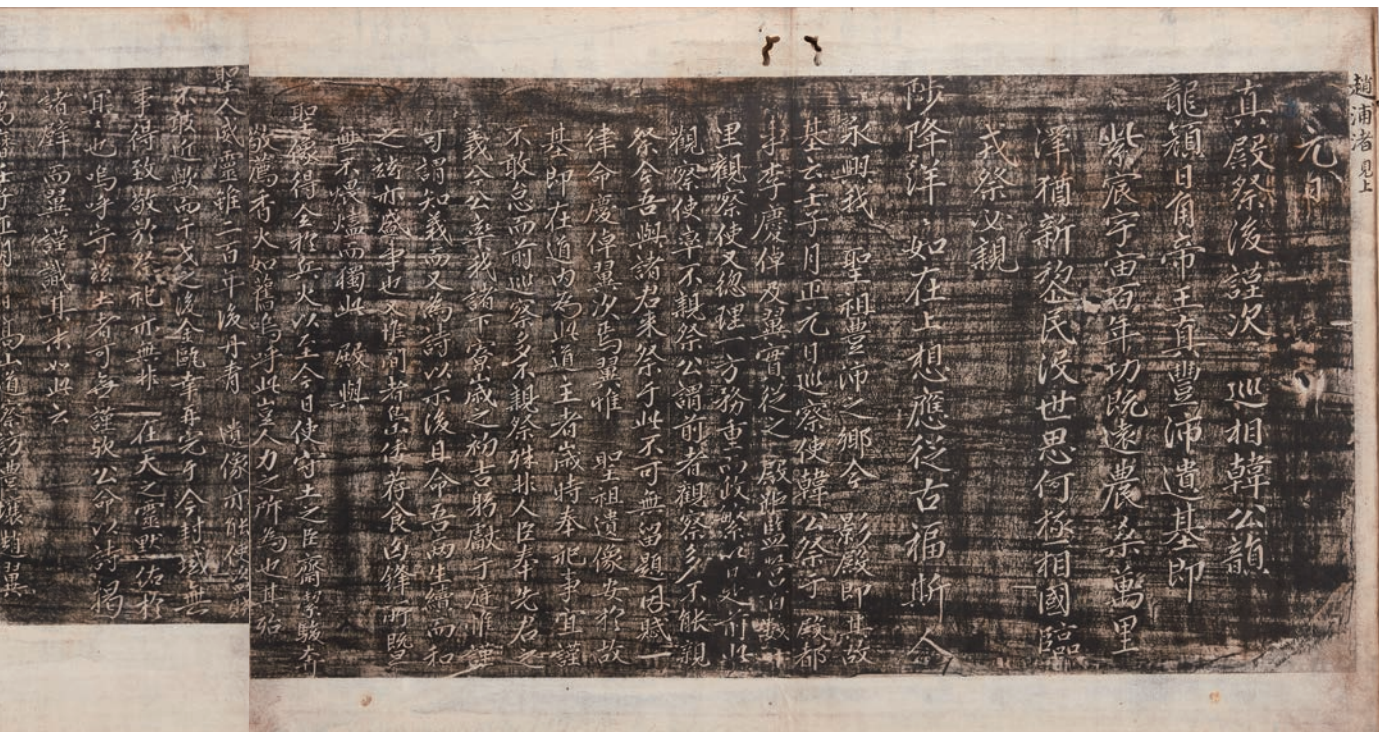 趙浦渚 見上
元日
真殿祭後謹次 巡相韓公韻
龍顏日角帝王真豐沛遺基即
紫宸宇宙百年功既遠農桑萬里
澤猶新黎民沒世思何極相國臨
我祭必親
陟降洋 如在上想應從古福斯人
永興我 聖祖豐沛之鄉今 影殿即其故
基云壬子月正元日巡察使韓公祭于 殿都
事李慶倬及翼實從之 殿
里觀察使又總理一方務重而政繁以
觀察使率不親祭公謂前者觀察多不能親
祭今吾與諸君來祭于此不可無留題因賦一
律命慶倬翼次焉翼惟 聖祖遺像安於故
基即在道內為此道主者歲時奉祀事宜謹
不敢怠而前巡察多不親祭殊非人臣奉先君之
義今公率我諸下寮歲之初吉躬獻于庭惟謹
可謂知義而又為詩以示後且命吾兩生續而和
之茲亦盛事也 惟前者島夷荐食凶鋒所
無不煨燼而獨此 殿與
聖像得全於兵火以至今日使守土之臣齋潔駿奔
敬薦香火如舊嗚呼此豈人力之所為也其殆
聖人威靈雖二百年後丹青 遺像亦能使
不敢近歟而干戈之後金甌幸再完于今封域無
事得致敬於祭祀亦無非 在天之靈默佑於
冥冥也嗚呼守茲土者可無謹歟公命以詩揭
諸壁 而翼謹識其末如此云
正月 日 高山道察訪豐壤趙翼